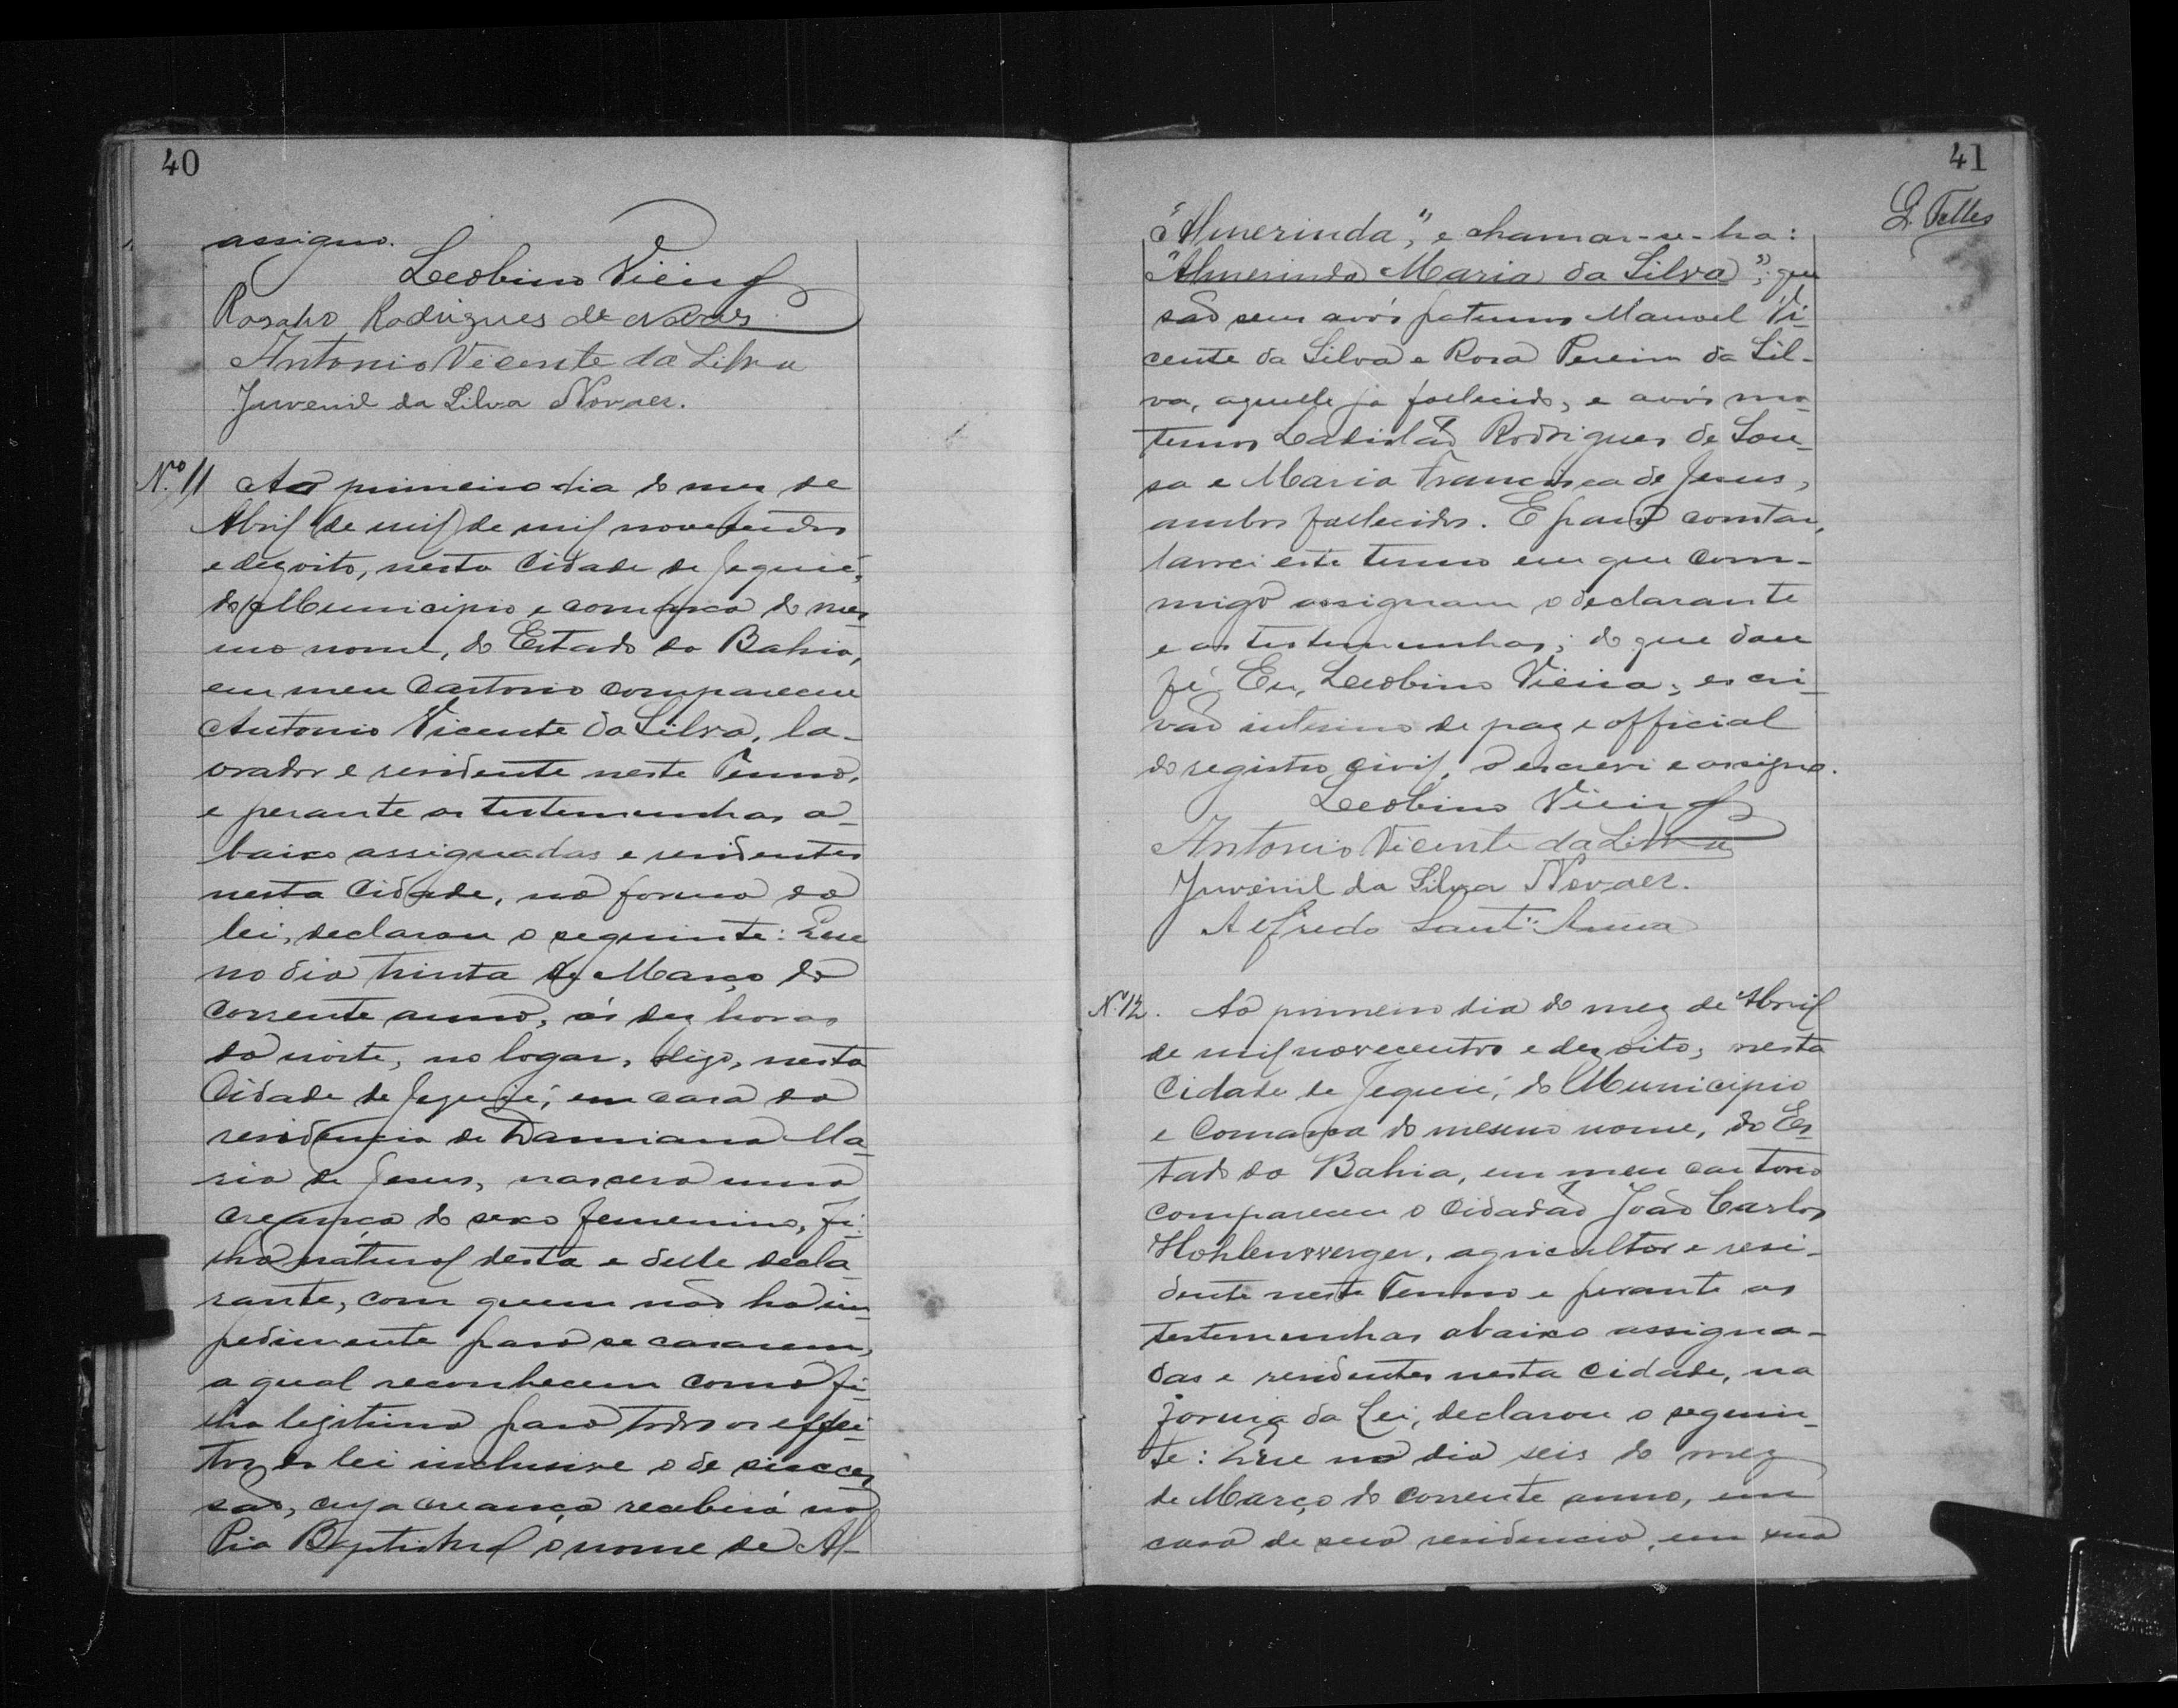 40
assigno.
Leobino Vieira
Rosalvo Rodrigues de Novaes
Antonio Vicente da Silva
Juvenil da Silva Novaes.
Nº 11 Ao primeiro dia do mez de
Abril de mil de mil novecentos
e dezoito, nesta Cidade de Jequié,
do Municipio e comarca do mes-
mo nome, do Estado da Bahia,
em meu Cartorio compareceu
Antonio Vicente da Silva, la-
vrador e residente neste Termo,
e perante as testemunhas a-
baixo assignadas e residentes
nesta Cidade, na forma da
lei, declarou o seguinte: Que
no dia trinta de Março do
corrente anno, ás dez horas
da noite, no logar, digo, nesta
Cidade de Jequié, em casa da
residencia de Damiana Ma-
ria de Jesus, nascera uma
creança do sexo femenino, fi-
lha natural desta e delle decla-
rante, com quem não ha im-
pedimento para se casarem,
a qual reconhecem como fi-
lha legitima para todos os effei-
tos da lei inclusive o de succes-
são, cuja creança receberá na
Pia Baptismal o nome de Al-
41
G. Telles
"Almerinda", e chamar-se-ha:
"Almerinda Maria da Silva"; que
são seus avós paternos Manoel Vi-
cente da Silva e Rosa Pereira da Sil-
va, aquelle já fallecido, e avós ma-
ternos Ladislão Rodrigues de Sou-
sa e Maria Francisca de Jesus,
ambos fallecidos. E para constar,
lavrei este termo em que com-
migo assignam o declarante
e as testemunhas; do que dou
fé. Eu, Leobino Vieira, escri-
vão interino de paz e official
do registro civil, o escrevi e assigno.
Leobino Vieira
Antonio Vicente da Silva
Juvenil da Silva Novaes.
Alfredo Sant'Anna
Nº 12. Ao primeiro dia do mez de Abril
de mil novecentos e dezoito, nesta
Cidade de Jequié, do Municipio
e Comarca do mesmo nome, do Es-
tado da Bahia, em meu cartorio
compareceu o Cidadão João Carlos
Hohlenwerger, agricultor e resi-
dente neste Termo e perante as
testemunhas abaixo assigna-
das e residentes nesta Cidade, na
forma da Lei, declarou o seguin-
te: Que no dia seis do mez
de Março do corrente anno, em
casa de sua residencia, em sua